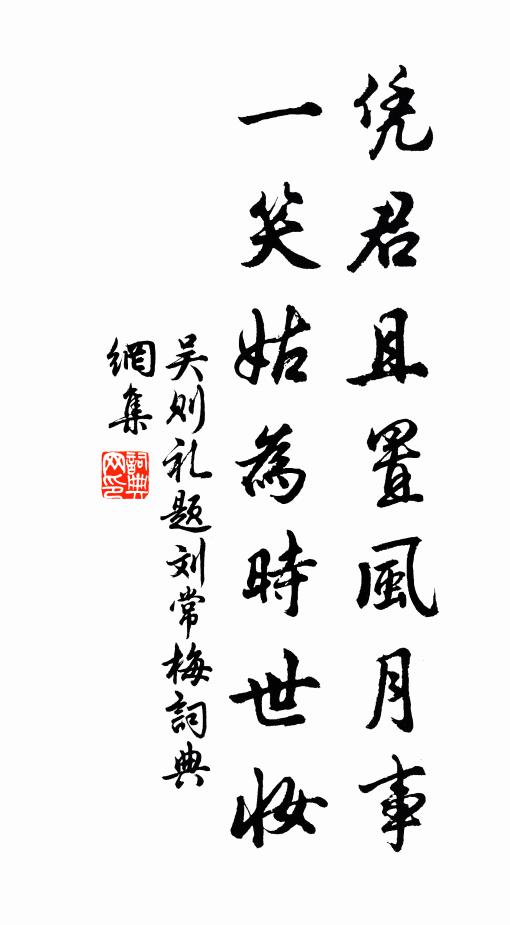 凭君且置風月事
一笑姑為時世妝
吴则礼题刘常梅詞典
網集
詞典網印